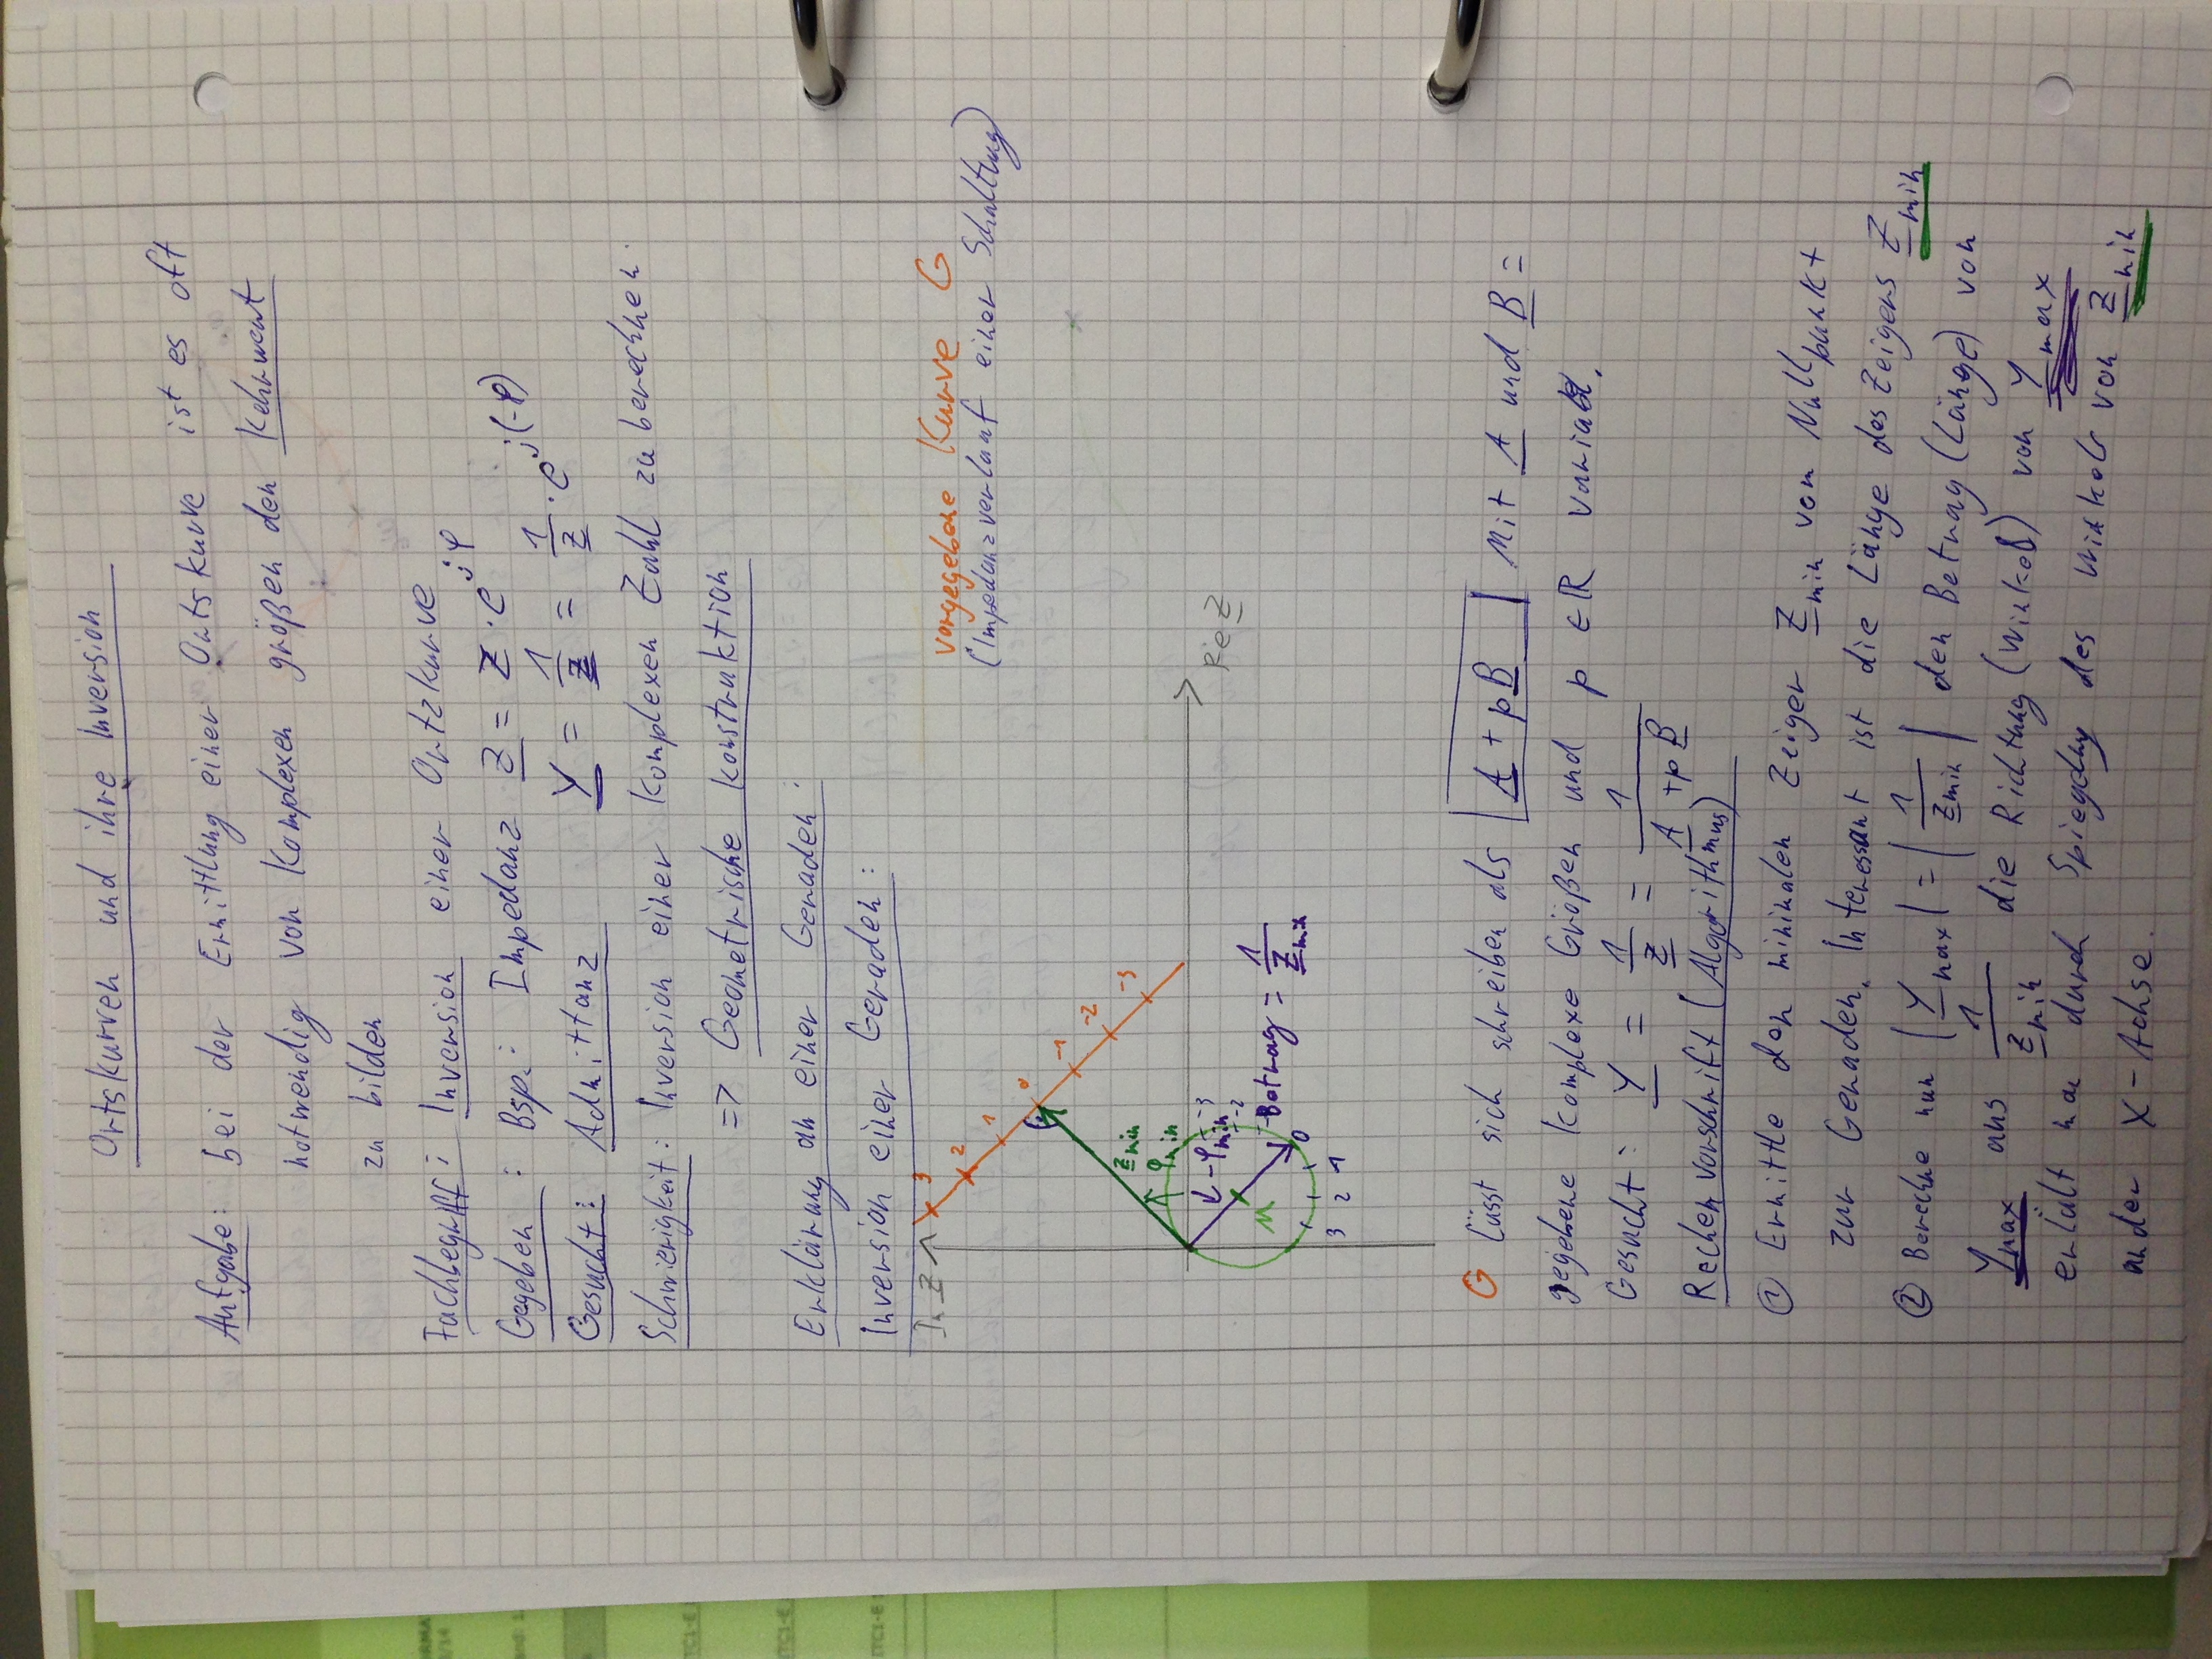 Ortskurven und ihre Inversion
Aufgabe: bei der Ermittlung einer Ortskurve ist es oft
notwendig von Komplexen größen den Kehrwert
zu bilden
Fachbegriff: Inversion einer Ortzkurve
Gegeben: Bsp.: Impedanz Z = Z · e^jφ
Gesucht: Admittanz Y = 1/Z = 1/Z · e^j(-φ)
Schwierigkeit: Inversion einer Komplexen Zahl zu berechnen.
=> Geometrische Konstruktion
Erklärung an einer Geraden:
Inversion einer Geraden:
Im Z
3
2
1
0
-1
-2
-3
vorgegebene Kurve G
(Impedanzverlauf einer Schaltung)
Z min
φ min
-φ min
-3
-2
Re Z
M
Betrag = 1/Z min
0
3 2 1
G lässt sich schreiben als A + pB Mit A und B =
gegebene Komplexe Größen und p ∈ ℝ variabel.
Gesucht: Y = 1/Z = 1/(A + pB)
Rechenvorschrift (Algorithmus)
① Ermittle den minimalen Zeiger Z min vom Nullpunkt
zur Geraden. Interessant ist die Länge des Zeigers Z min
② Berechne nun |Y max| = |1/Z min| den Betrag (Länge) von
Y max aus 1/Z min die Richtung (Winkel) von Y max
erhält man durch Spiegelung des Winkels von Z min
an der X-Achse.